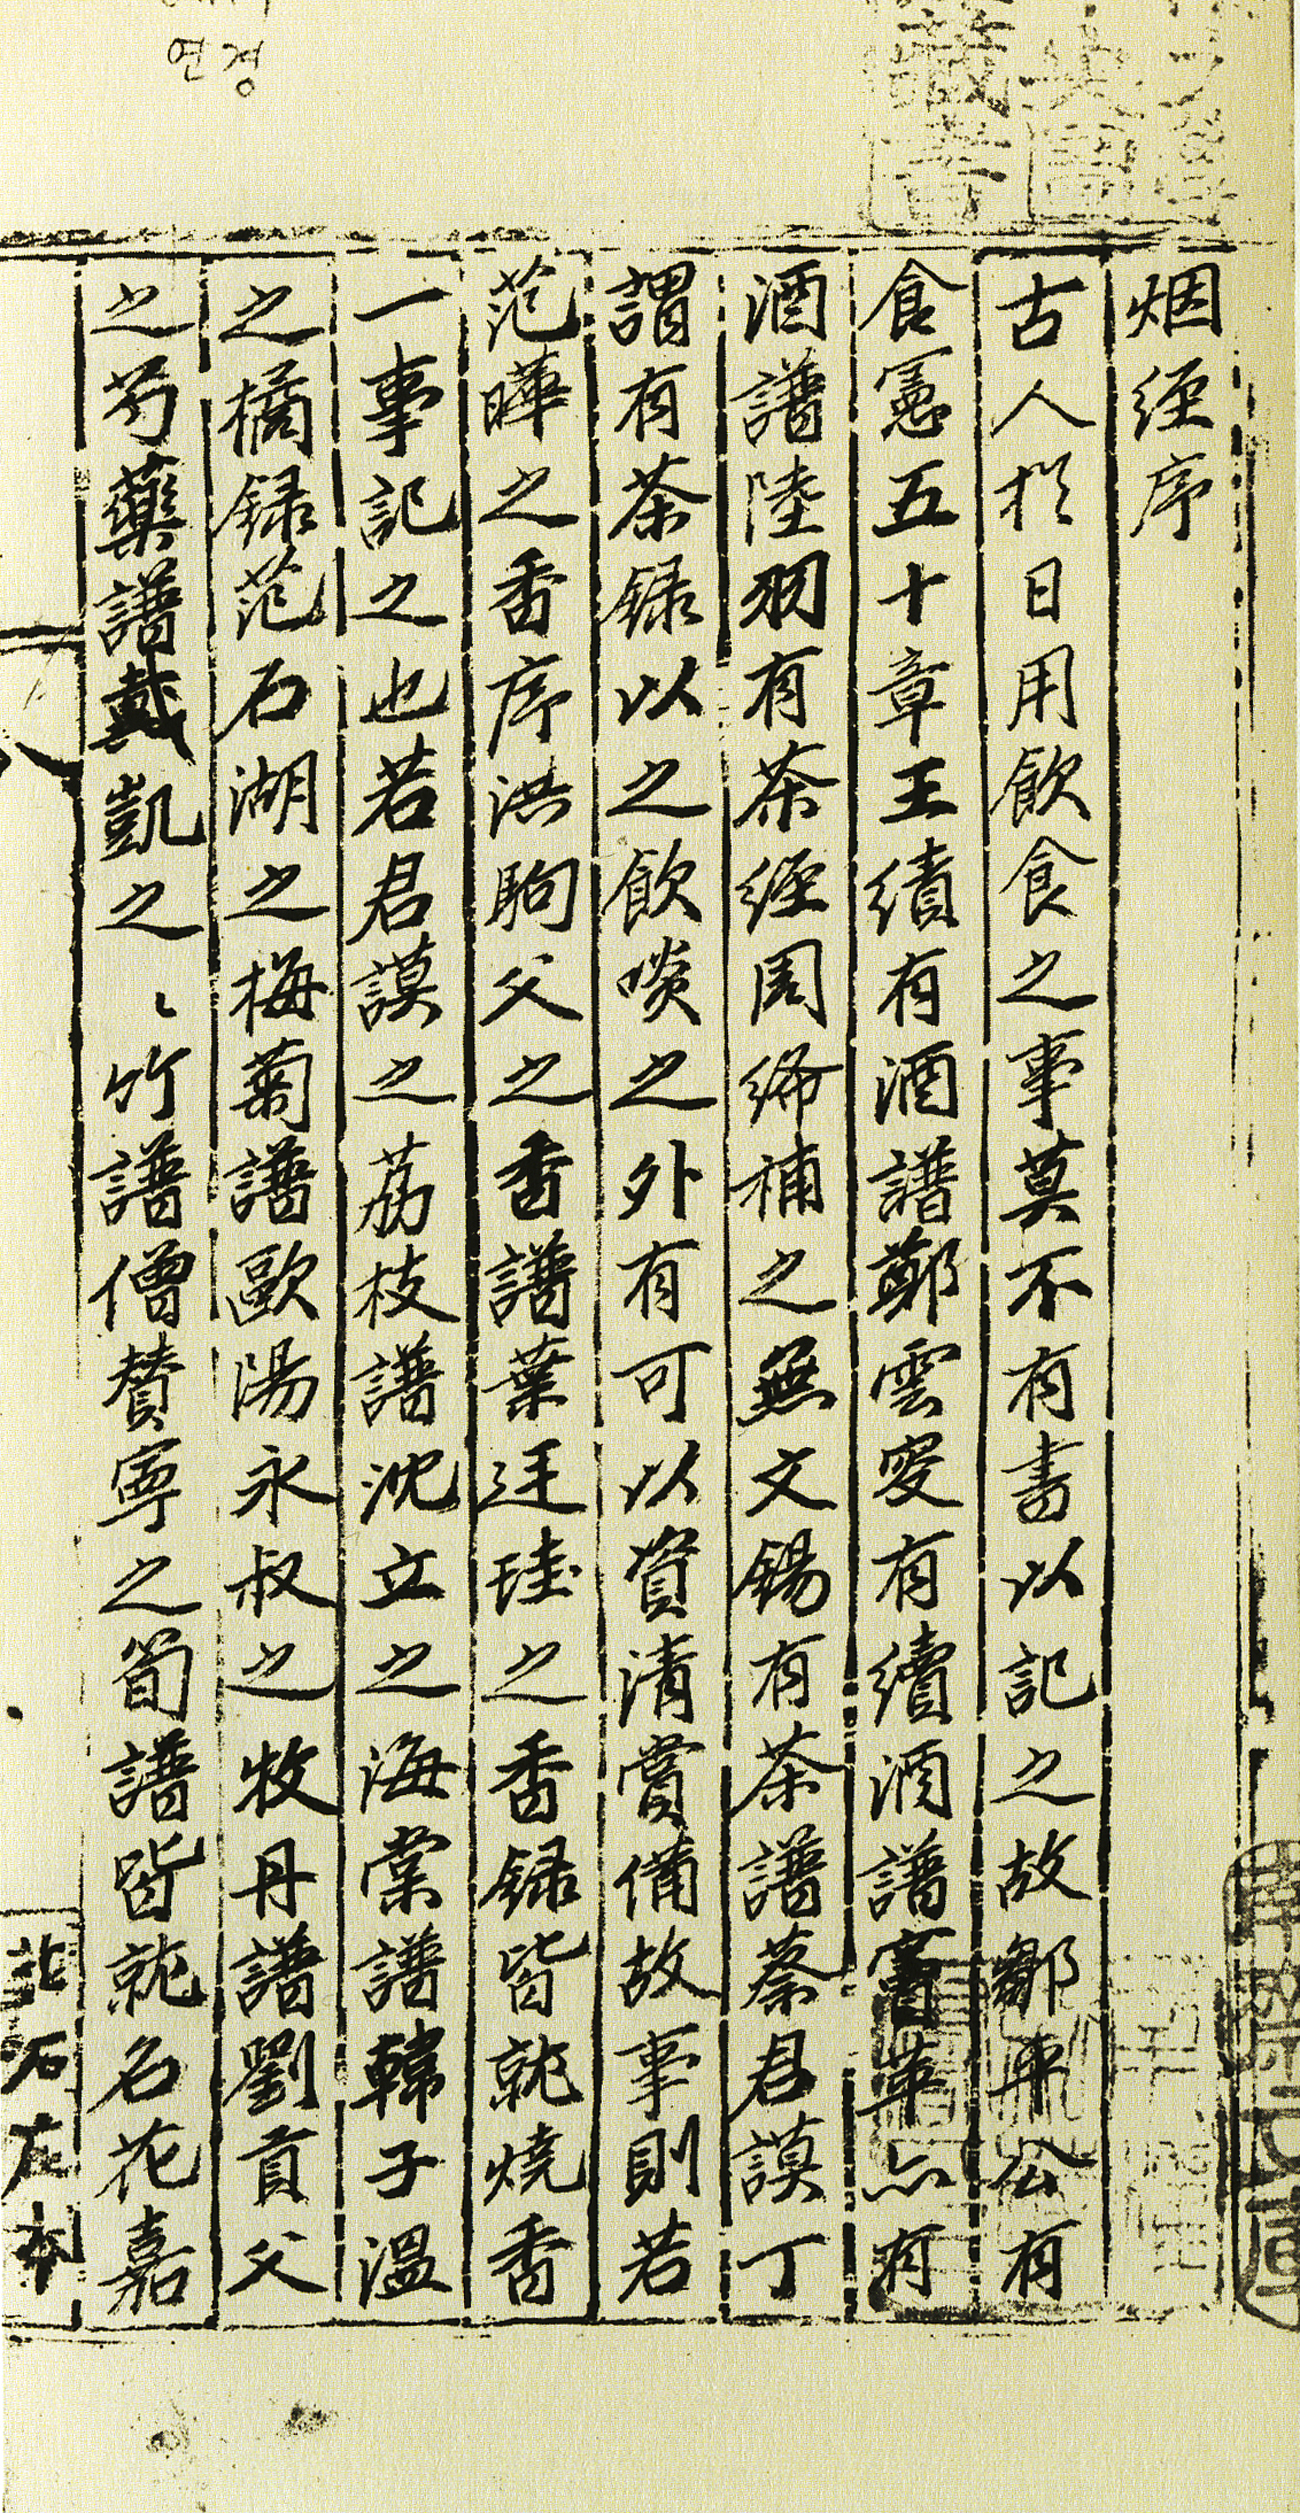 연경
烟經序
古人於日用飲食之事莫不有書以記之故鄒平公有
食憲五十章王績有酒譜鄭雲叟有續酒譜竇革亦有
酒譜陸羽有茶經周絳補之無文錫有茶譜蔡君謨丁
謂有茶錄以之飲啖之外有可以資清賞備故事則若
范曄之香序洪駒父之香譜葉廷珪之香錄皆就燒香
一事記之也若君謨之荔枝譜沈立之海棠譜韓子溫
之橘錄范石湖之梅菊譜歐陽永叔之牧丹譜劉貢父
之芍藥譜戴凱之〻竹譜僧贊寧之筍譜皆就名花嘉
石左本